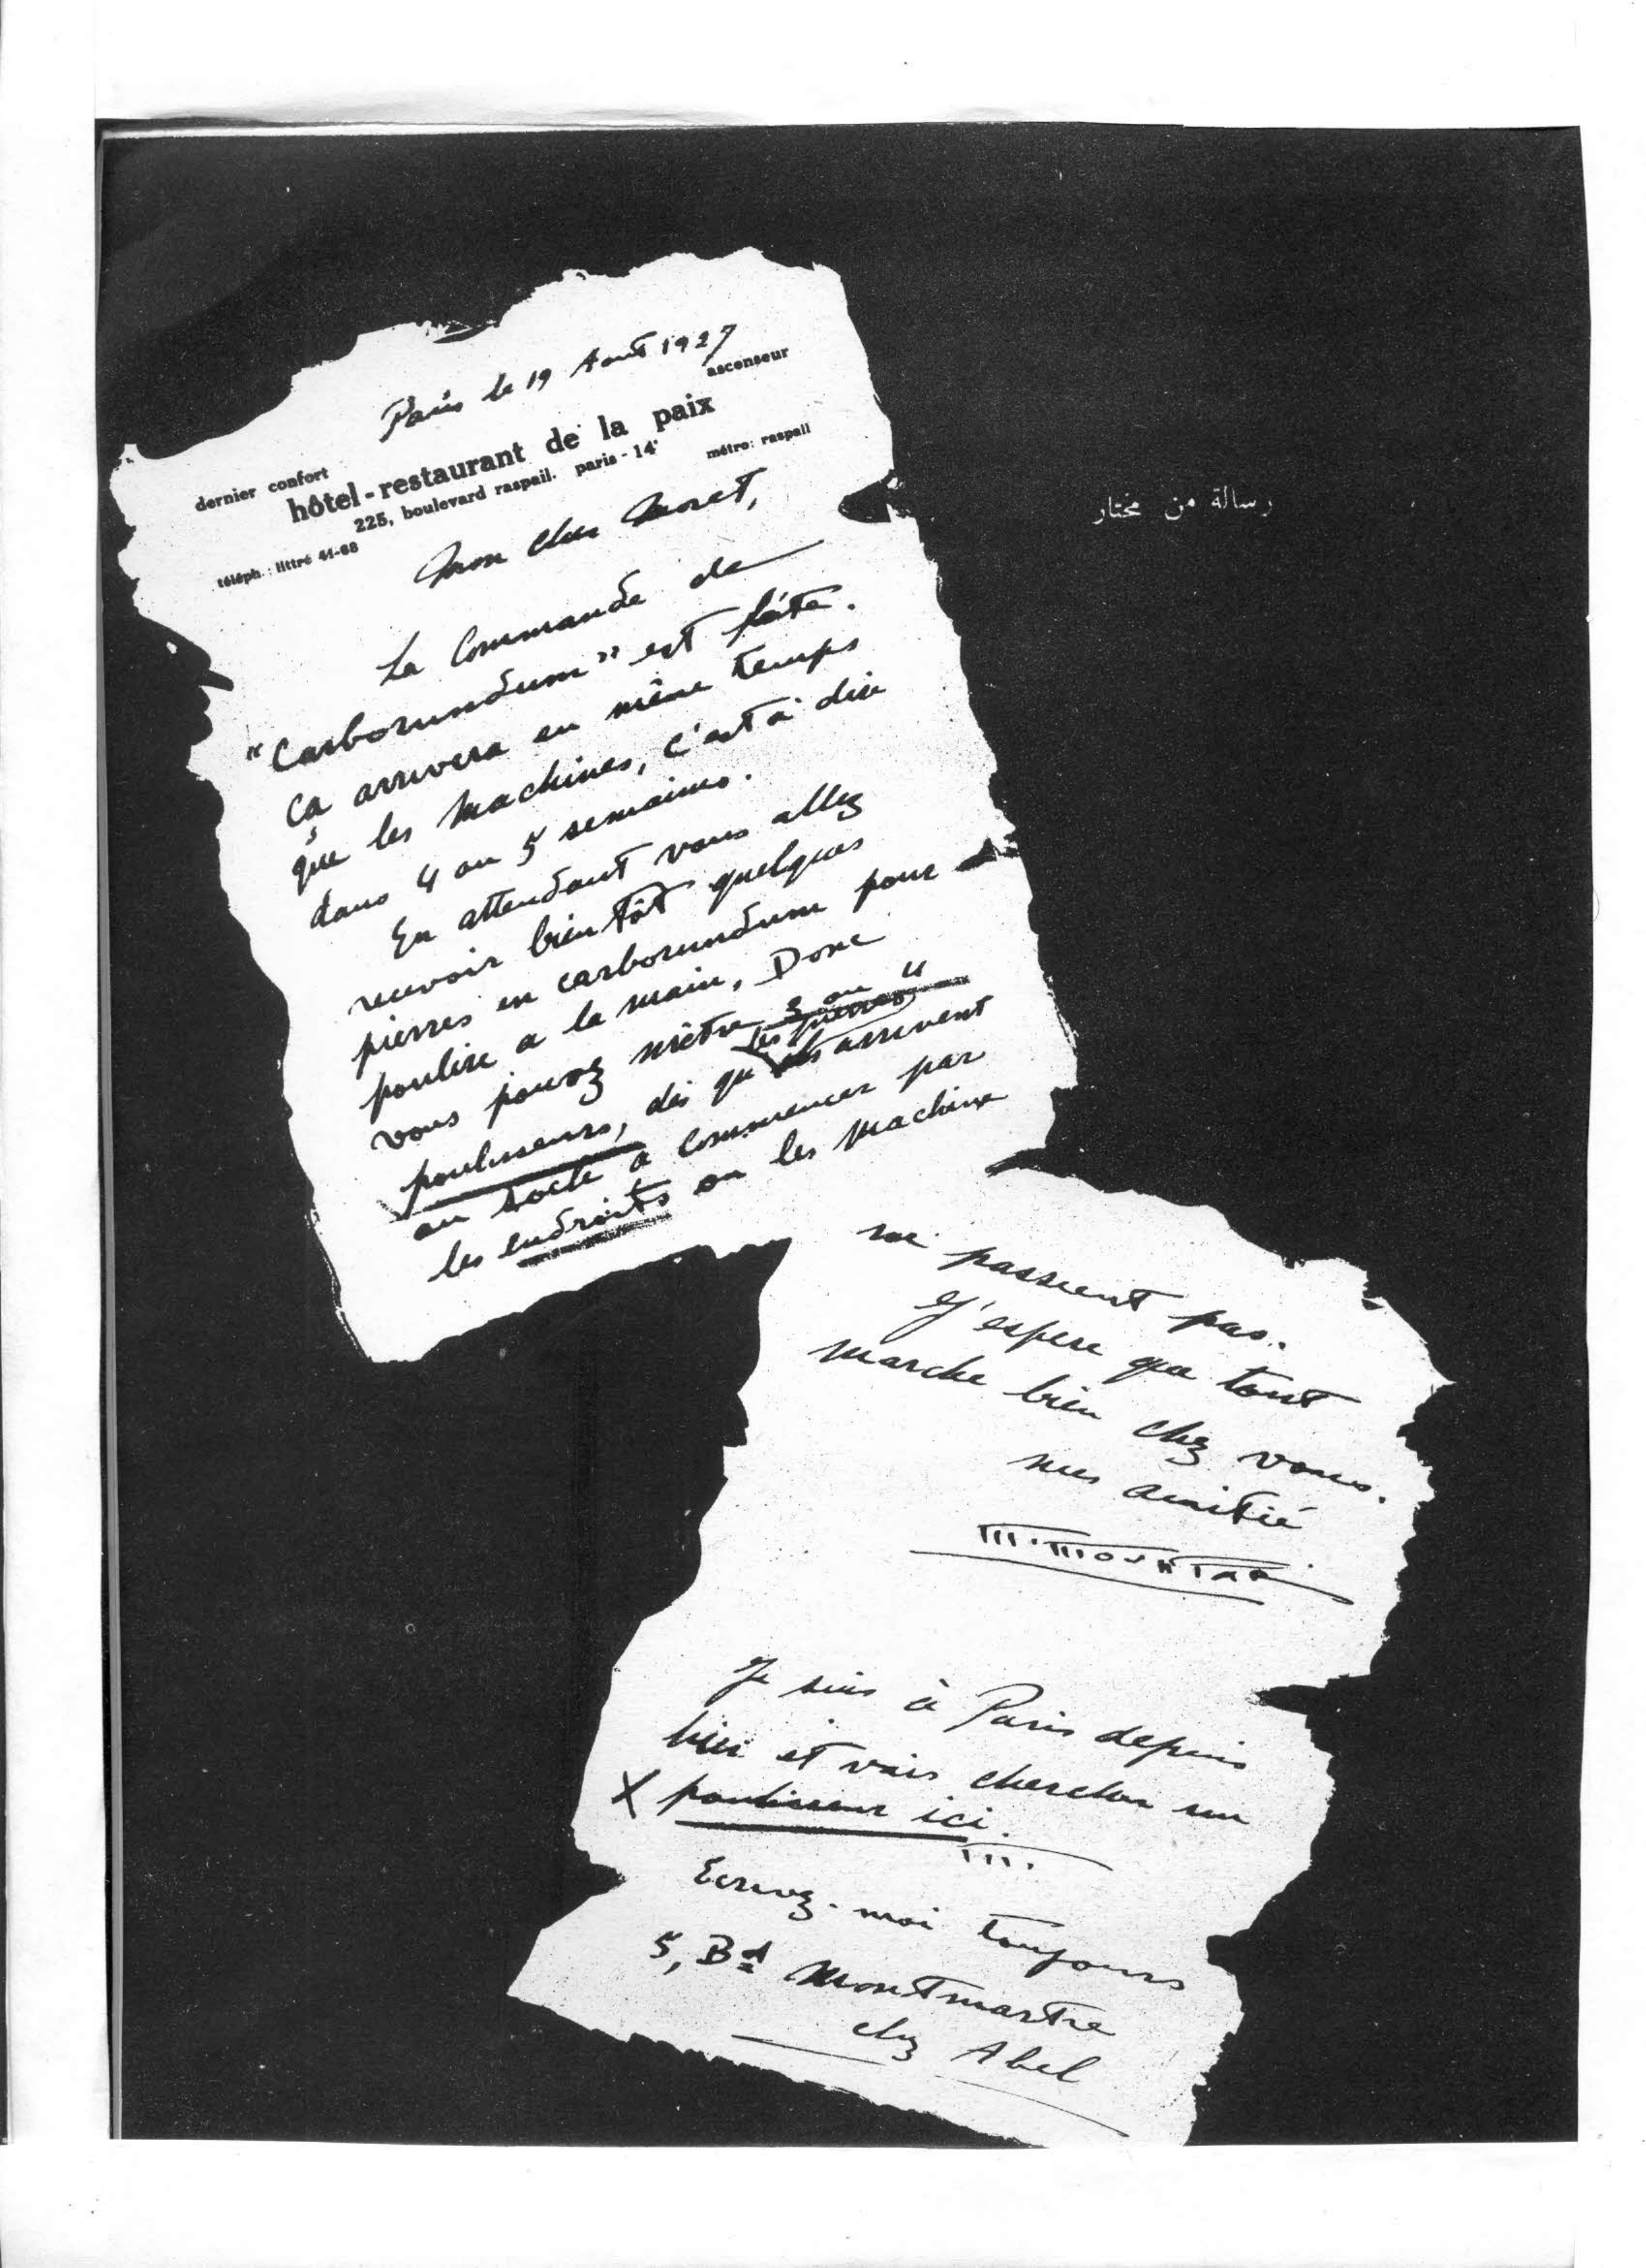 Paris le 19 Aout 1927
dernier confort
ascenseur
hôtel-restaurant de la paix
225, boulevard raspail. paris-14e
téléph.: littré 41-68
métro: raspail
رسالة من مختار
Mon cher Moret,
La Commande de
"Carborundum" est faite.
Ça arrivera en même temps
que les Machines, c'est à dire
dans 4 ou 5 semaines.
En attendant vous allez
recevoir bientôt quelques
pierres en carborundum pour
poulire a la main, Donc
vous pouvez mêtre 3 ou 4
poulisseurs, dès qu'
les pierres
arrivent
au socle a commencer par
les endroits ou les Machine
ne passent pas.
J'espere que tout
marche bien chez vous.
mes amitié
M. MOUKTAR
Je suis à Paris depuis
hier et vais chercher un
X poulisseur ici.
M.
Ecrivez-moi toujours
5, Bd Montmartre
chez Abel